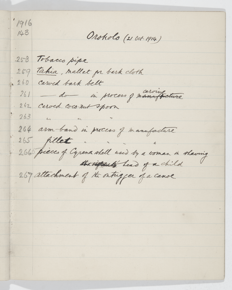 1916
143
Orokolo (21 Oct. 1916)
258 Tobacco pipe
259 tahia, mallet for bark cloth
260 carved bark belt
261 — do — in process of carving manufacture
262 carved coconut spoon
263 " " "
264 arm-band in process of manufacture
265 fillet " " " "
266 piece of Cyrena shell used by a woman in shaving
the head of a child
267 attachment of the outrigger of a canoe